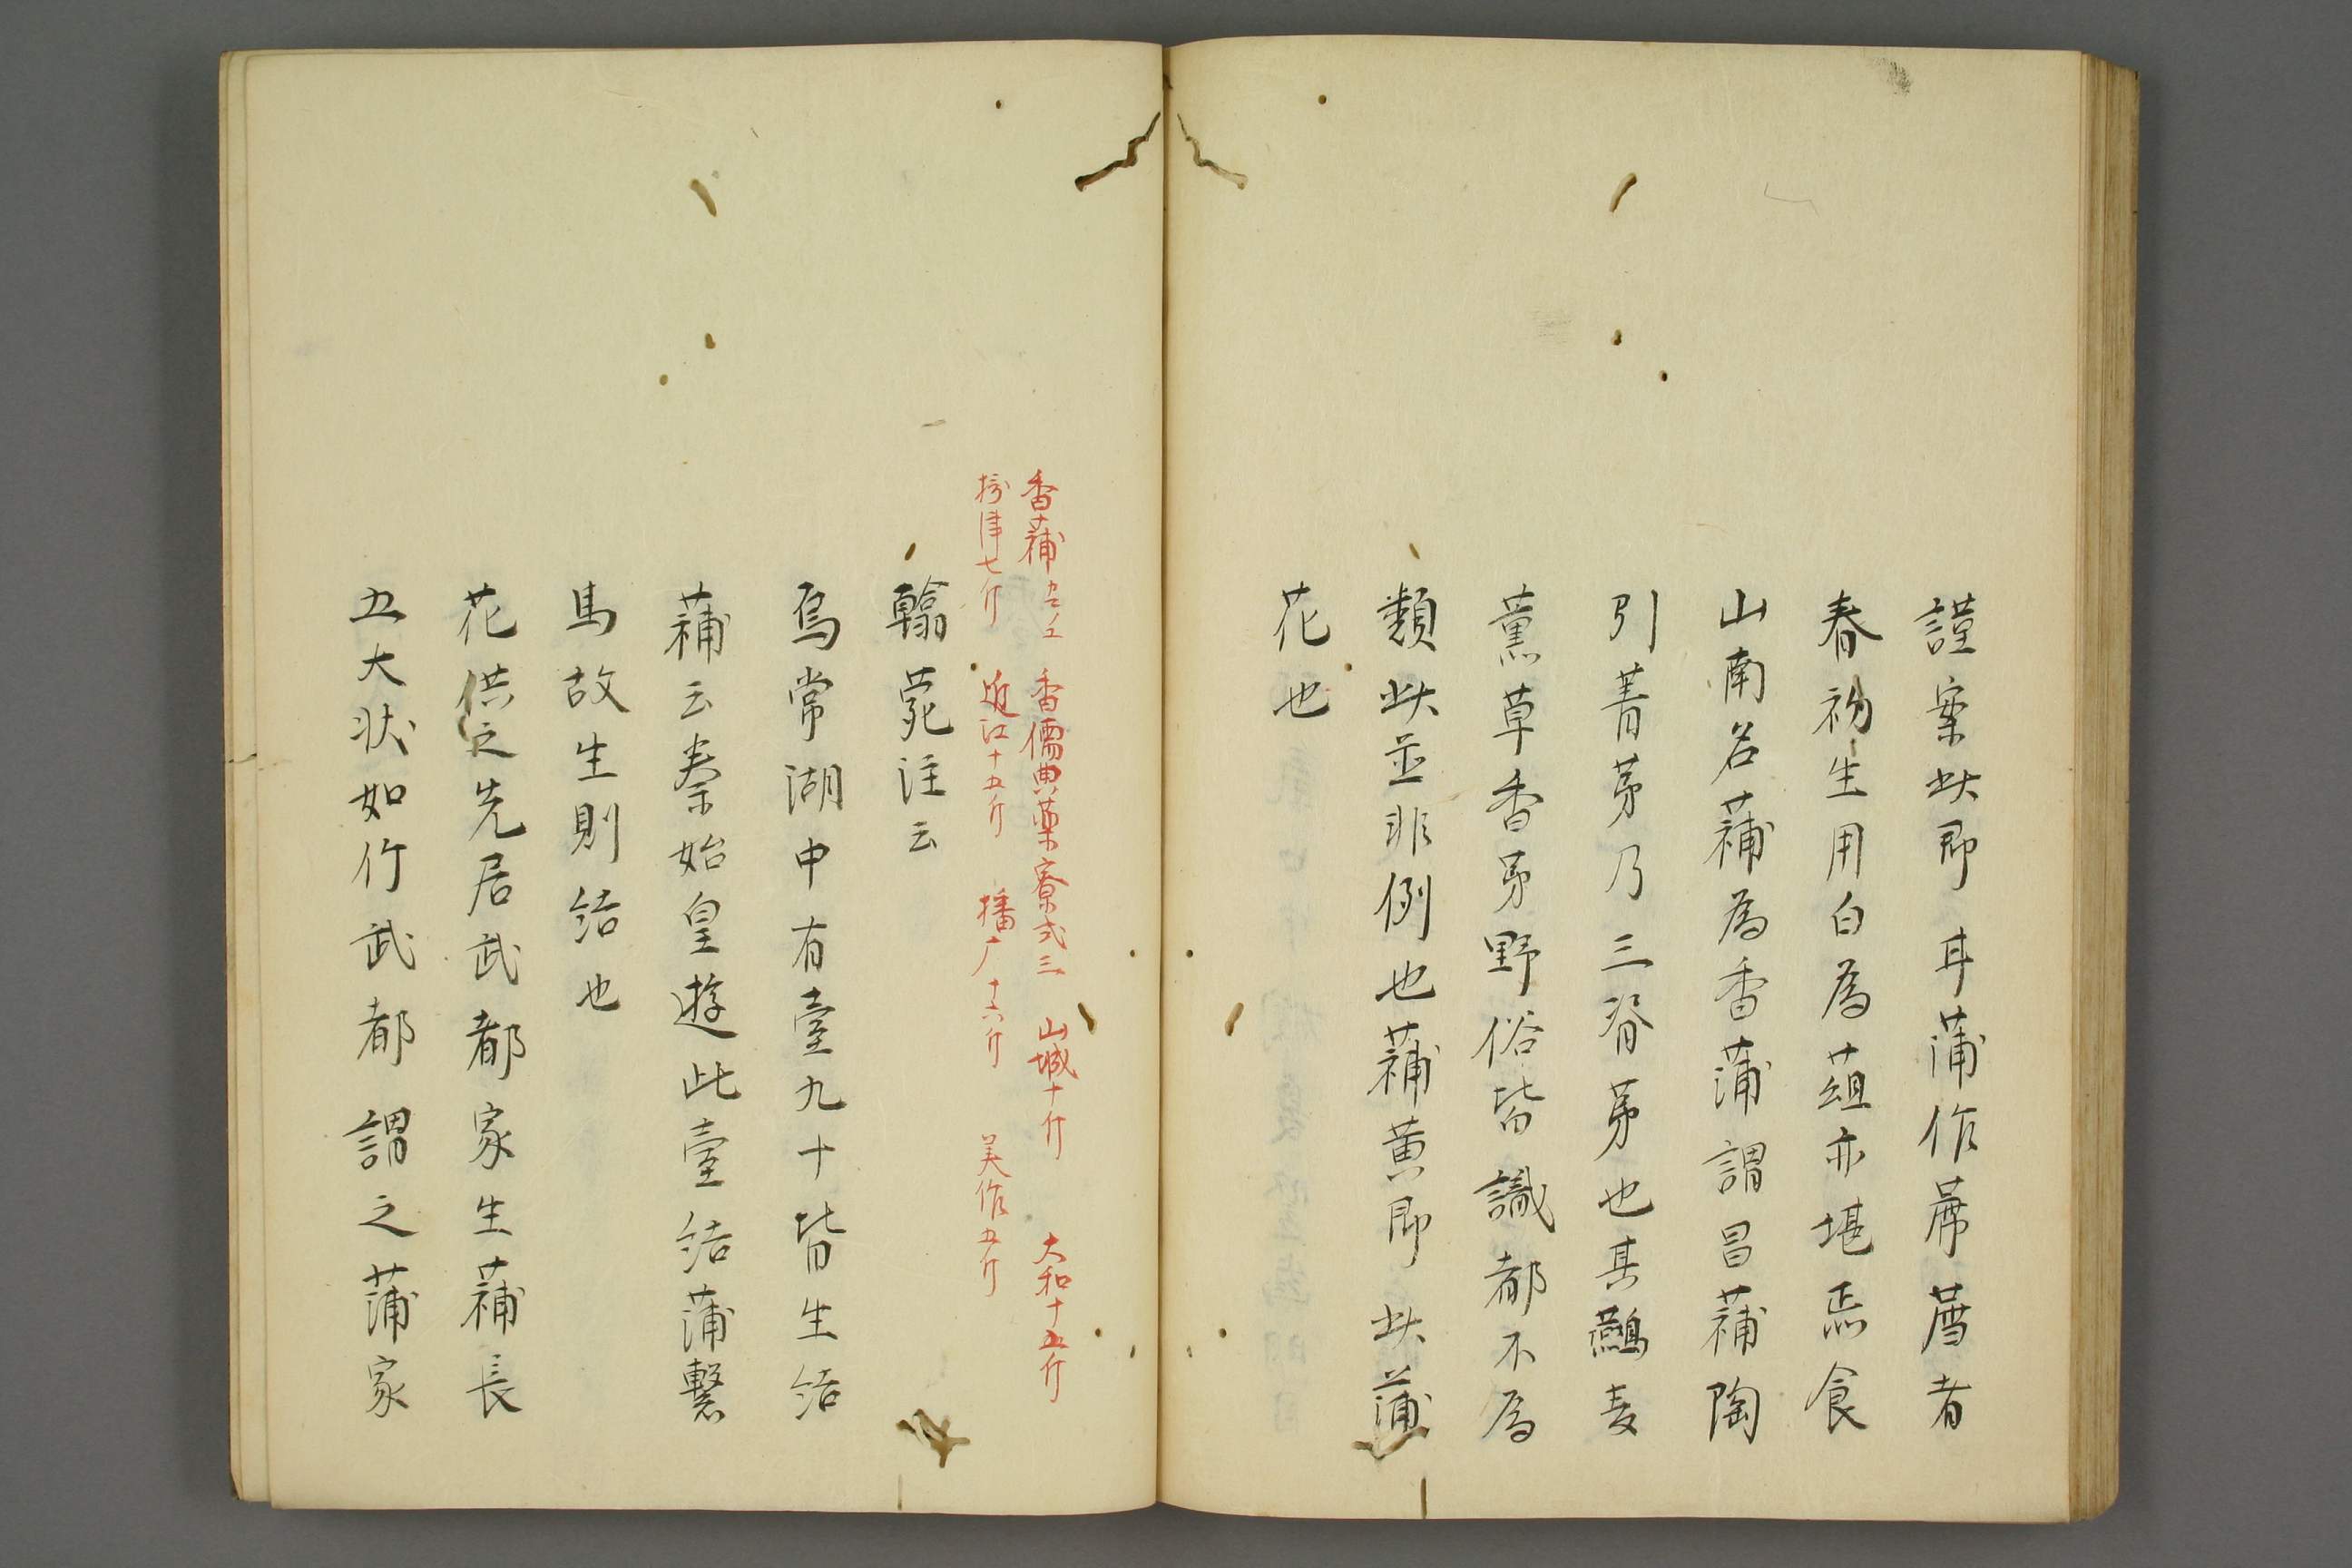 謹案此即耳蒲作薦薦者
春初生用白為葅亦堪𤈦食
山南名蒲為香蒲謂昌蒲陶
引菁茅乃三脊茅也其䴏麦
薫草香茅野俗皆識都不為
類此並非例也蒲黄即此蒲
花也
香蒲 香儒典藥寮式三 山城十斤 大和十五斤
摂津七斤 近江十五斤 播广十六斤 美作五斤
翰苑注云
烏常湖中有臺九十皆生結
蒲云秦始皇遊此臺結蒲繫
馬故生則結也
花供之先居武都家生蒲長
五大状如竹武都謂之蒲家